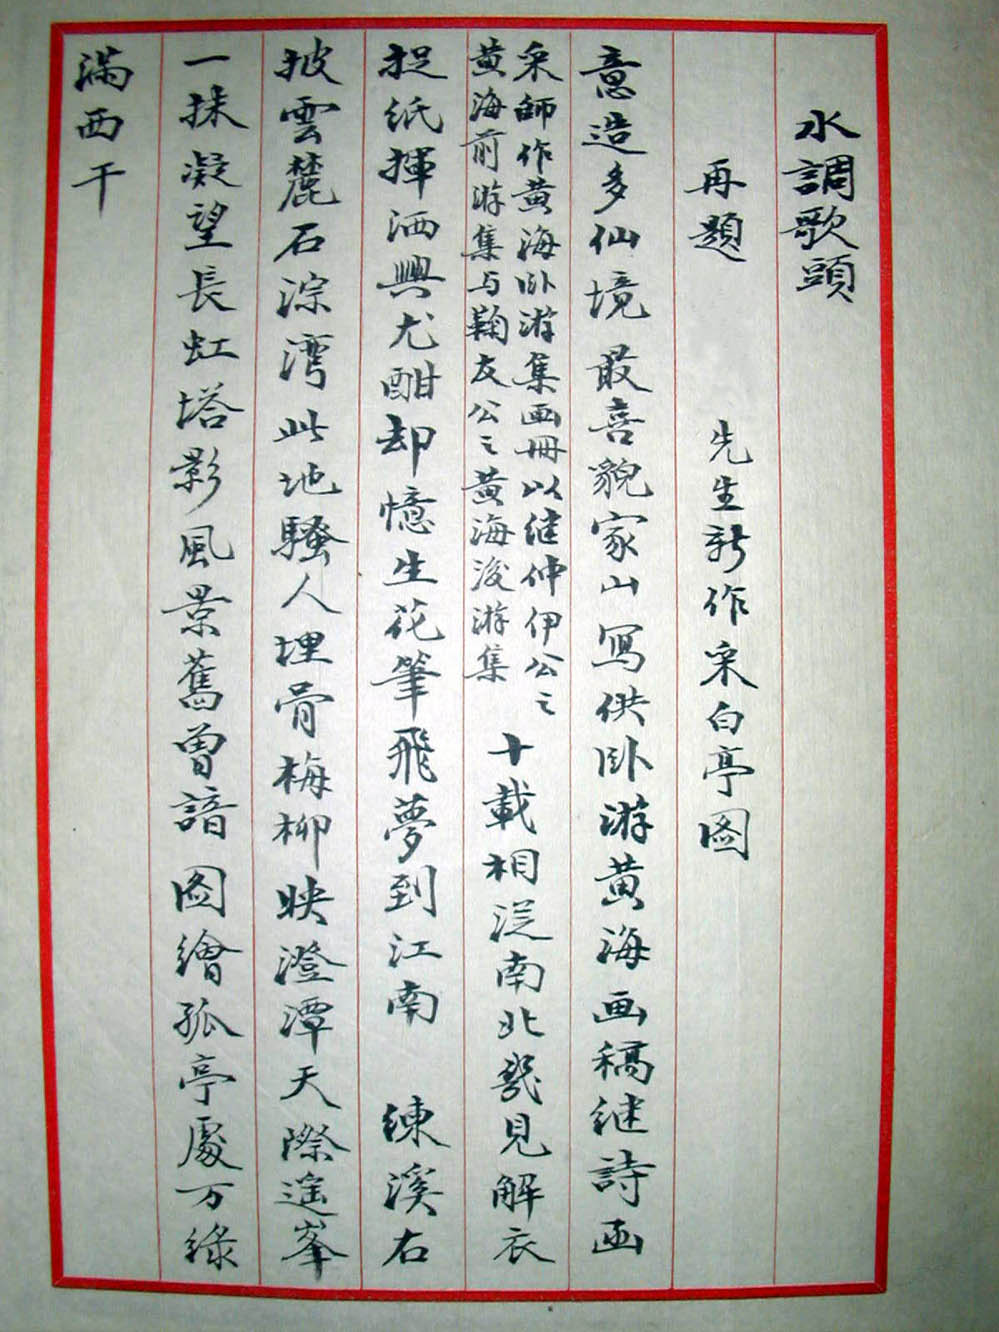 水調歌頭
再題 先生新作采白亭图
意造多仙境最喜貌家山寫供卧游黄海画稿继詩函
采師作黄海卧游集画冊以继仲伊公之
黄海前游集与鞠友公之黄海後游集
十載相從南北幾見解衣
捉纸揮洒興尤酣却憶生花筆飛夢到江南 練溪右
披雲麓石淙湾此地騷人埋骨梅柳映澄潭天際遥峯
一抹凝望長虹塔影風景舊曾諳图繪孤亭處万綠
满西干